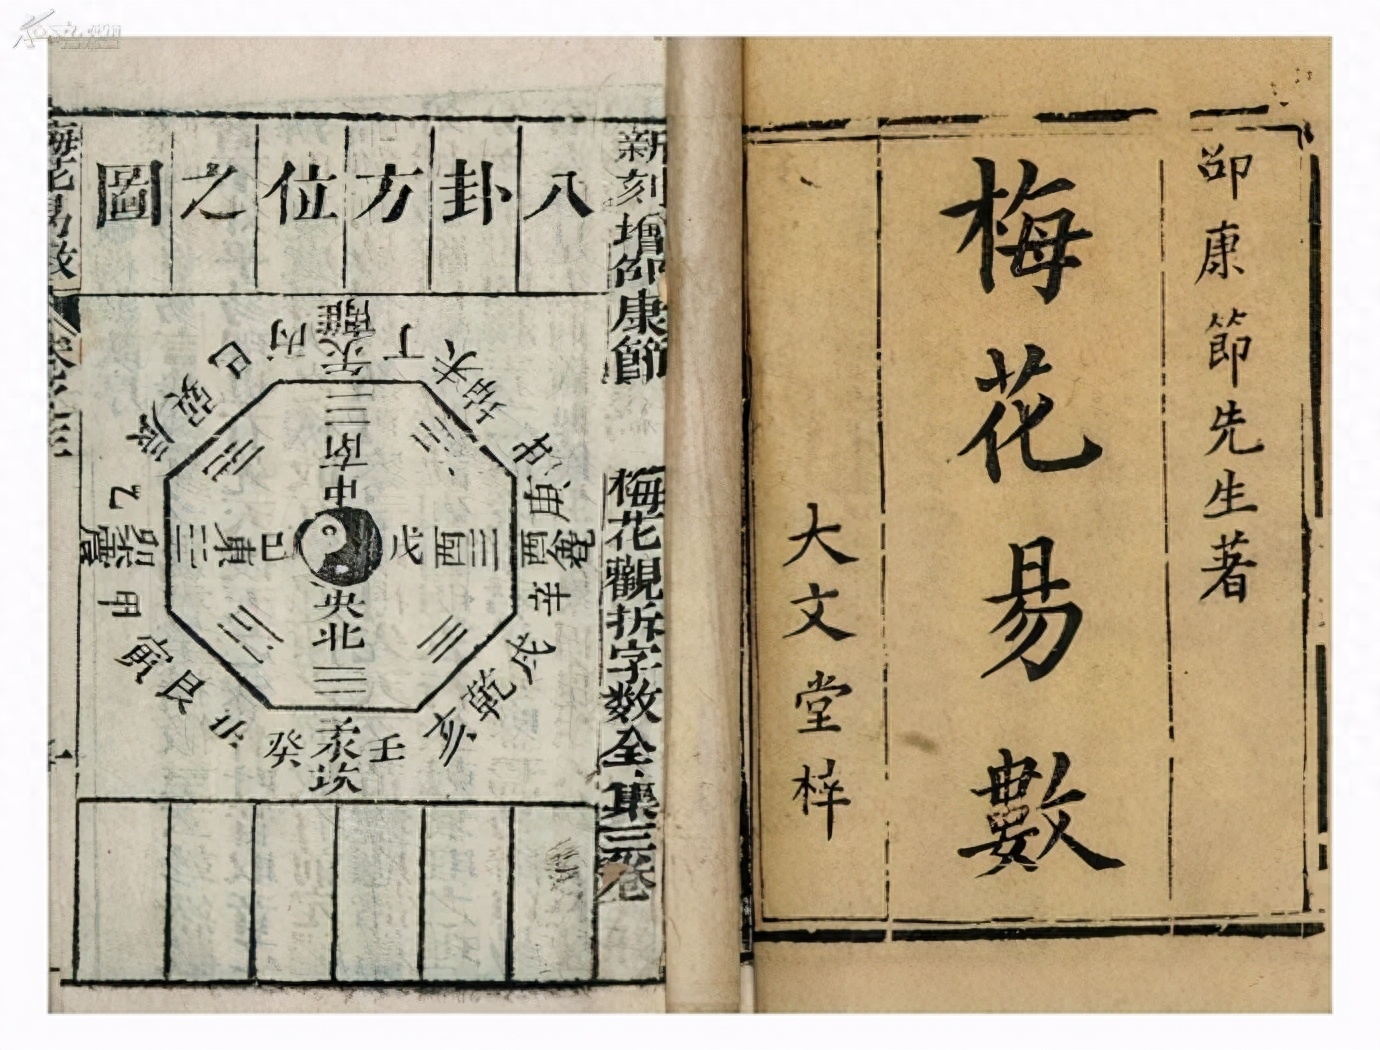 邵康節先生著
梅花易數
大文堂梓
新刻增邵康節 梅花觀拆字数全集三卷
八卦方位之圖
丙
離
丁
火
未
坤
申
庚
兌
酉
辛
戌
乾
亥
壬
水
坎
癸
丑
艮
寅
甲
震
卯
乙
辰
巽
巳
南
中
酉
戊
己
東
央
北
梅花易数